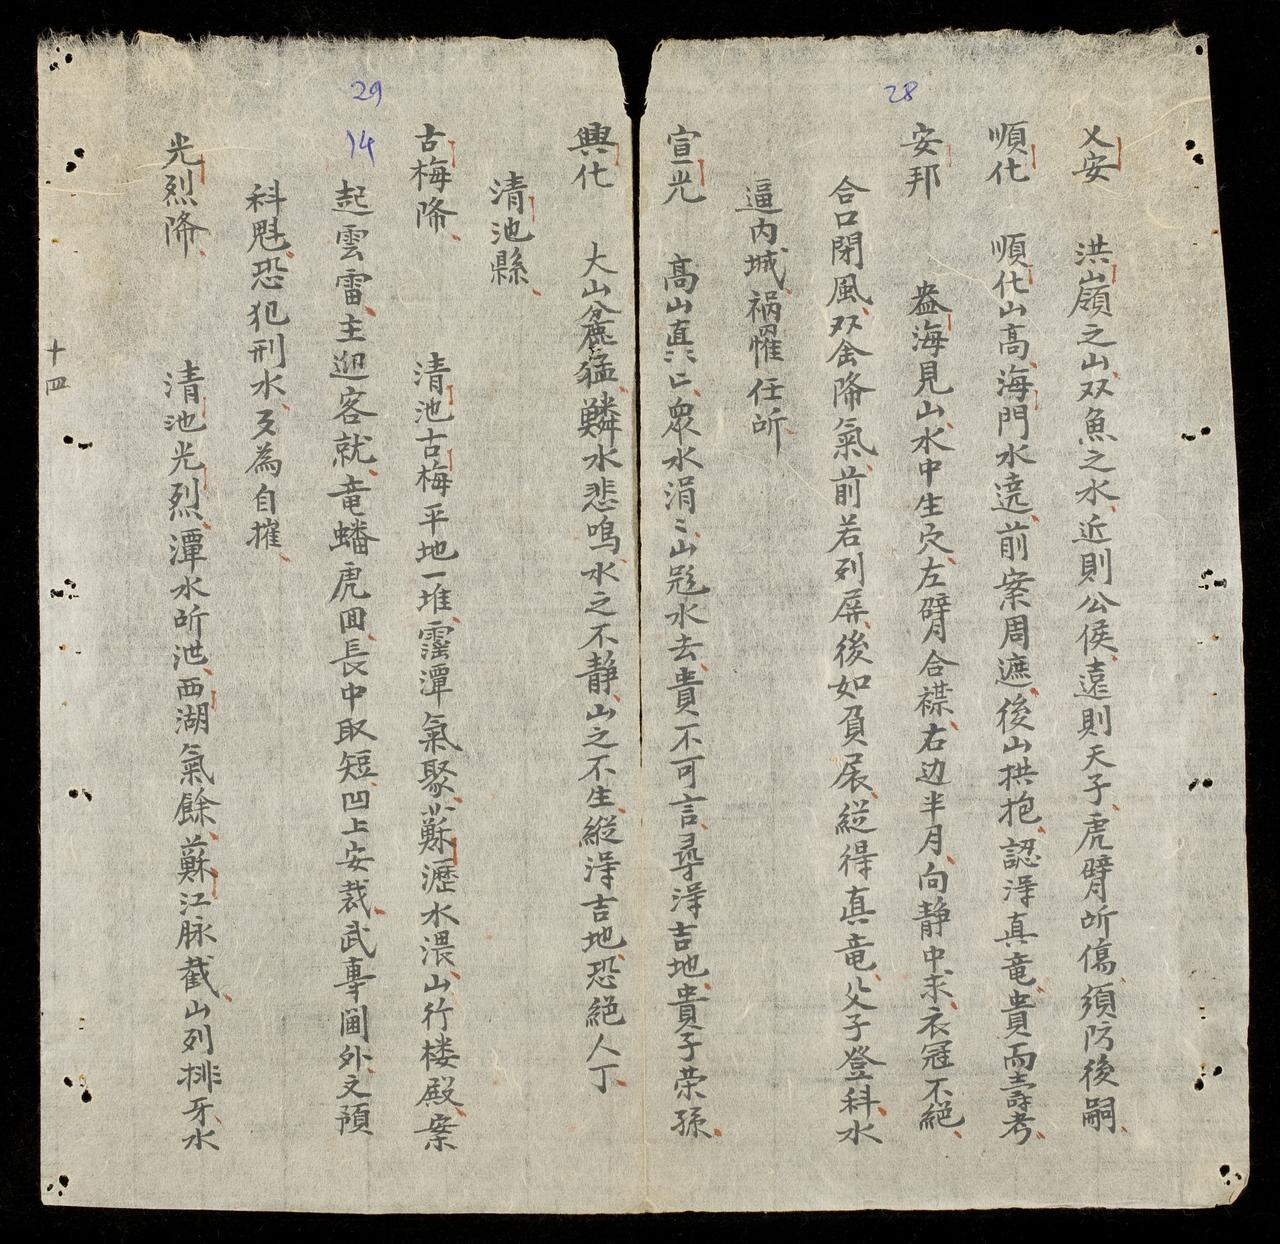 28
乂安 洪嶺之山双魚之水近則公侯遠則天子虎臂所傷須防後嗣
順化 順化山高海門水遶前案周遮後山拱抱認淂真竜貴而壽考
安邦 盎海見山水中生穴左臂合襟右边半月向静中求衣冠不絕
合口閉風双金降氣前若列屏後如負扆縱得真竜父子登科水
逼内城祸罹任所
宣光 高山真二正眾水涓〻山逃水去貴不可言尋淂吉地貴子荣孫
興化 大山麄猛鱗水悲鳴水之不静山之不生縱淂吉地恐絕人丁
清池縣
29
古梅降 清池古梅平地一堆靈潭氣聚蘇瀝水濃山行楼殿案
14
起雲雷主迎客就竜蟠虎囬長中取短凹上安裁武專閫外文預
科魁恐犯刑水反為自摧
光烈降 清池光烈潭水所池西湖氣餘蘇江脉截山列排牙水
十四